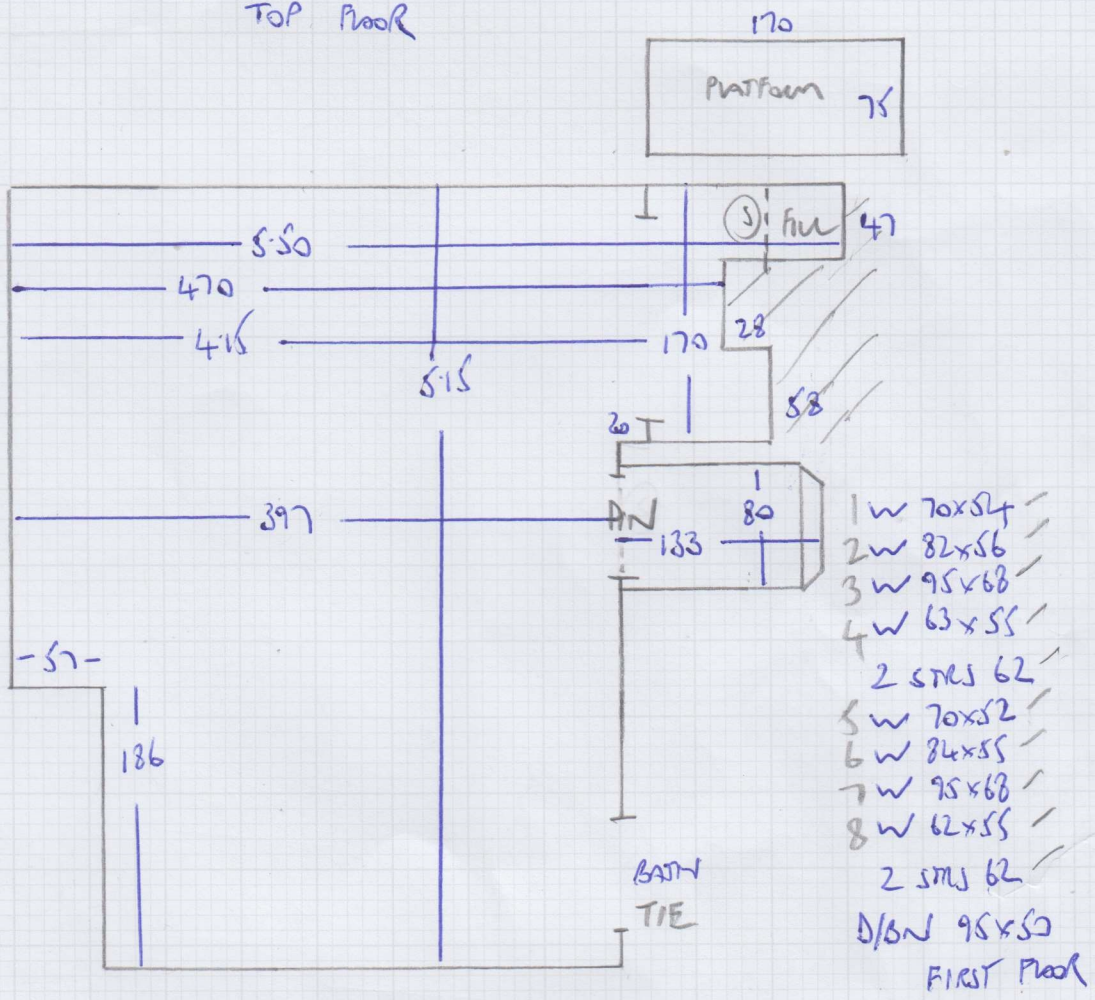 TOP FLOOR
170
PLATFORM 75
5·50
S FILL 47
470
415
170
28
5·15
58
20
397
80
133
-57-
186
BATH
TIE
1 W 70x54
2 W 82x56
3 W 95x68
4 W 63x55
2 STRS 62
5 W 70x52
6 W 84x55
7 W 95x68
8 W 62x55
2 STRS 62
D/BN 95x50
FIRST FLOOR